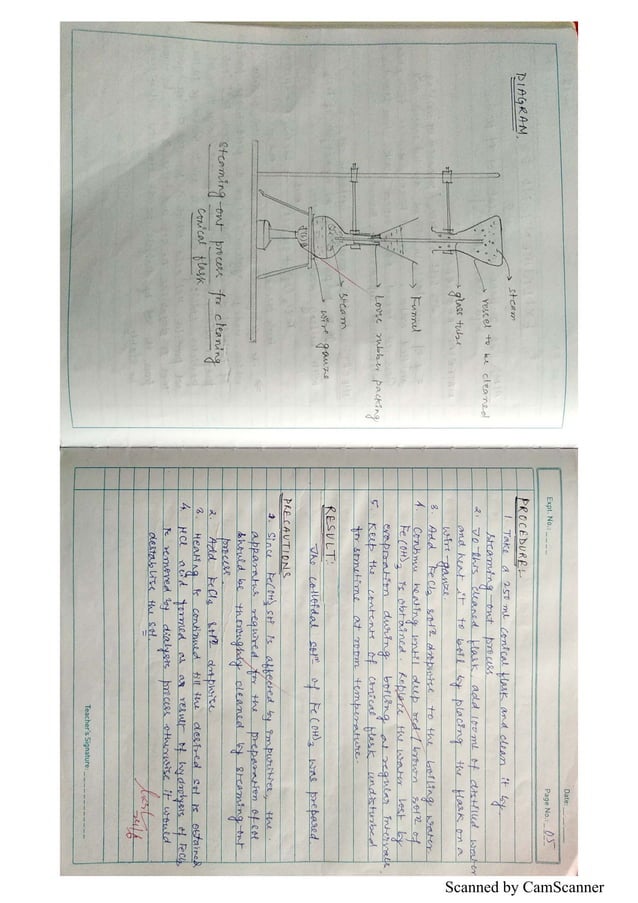 DIAGRAM.
steam
vessel to be cleaned
glass tube
Funnel
Loose rubber packing
steam
wire gauze
steaming-out process for cleaning
conical flask
Expt. No.:
Date:
Page No.: 05
PROCEDURE:
1. Take a 250 ml conical flask and clean it by
steaming-out process
2. To this cleaned flask, add 100ml of distilled water
and heat it to boil by placing the flask on a
wire gauze
3. Add FeCl3 solⁿ dropwise to the boiling water
4. Continue heating until deep red / brown solⁿ of
Fe(OH)3 is obtained. Replace the water lost by
evaporation during boiling at regular intervals.
5. Keep the contents of conical flask undisturbed
for sometime at room temperature.
RESULT:
The colloidal solⁿ of Fe(OH)3 was prepared
PRECAUTIONS
1. Since Fe(OH)3 sol is affected by impurities, the
apparatus required for the preparation of sol
should be thoroughly cleaned by steaming-out
process.
2. Add FeCl3 solⁿ dropwise
3. Heating is continued till the desired sol is obtained
4. HCl acid formed as a result of hydrolysis of FeCl3
is removed by dialysis process otherwise it would
destabilize the sol
Teacher's Signature:
Scanned by CamScanner